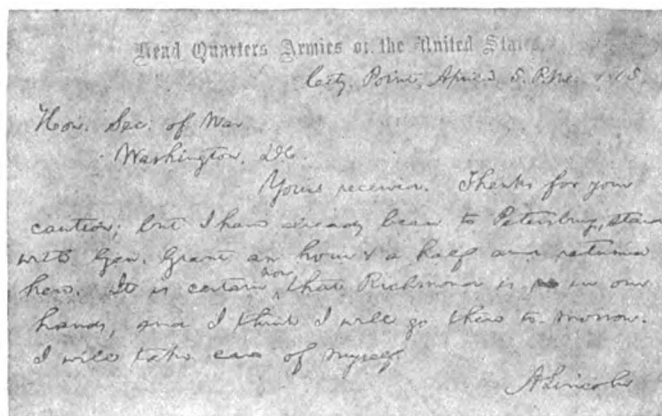 Head Quarters Armies of the United States,
City Point, April 3. 5. P.M. 1865
Hon. Sec. of War
Washington, D.C.
Yours received. Thanks for your
caution; but I have already been to Petersburg, staid
with Gen. Grant an hour & a half and returned
here. It is certain now that Richmond is in our
hands, and I think I will go there to-morrow.
I will take care of myself.
A. Lincoln